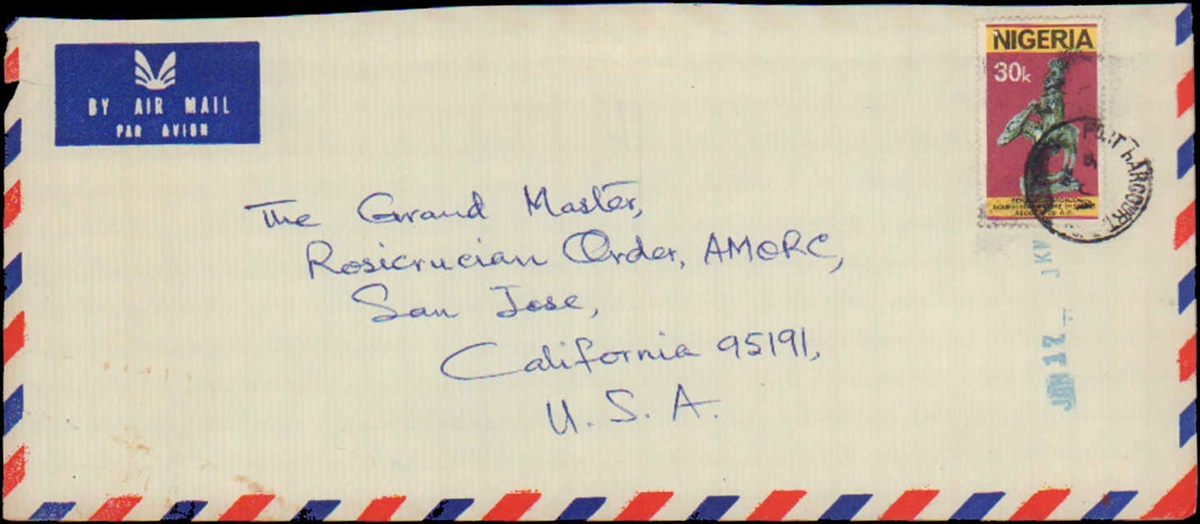 BY AIR MAIL
PAR AVION
NIGERIA
30k
PORT HARCOURT
The Grand Master,
Rosicrucian Order, AMORC,
San Jose,
California 95191,
U. S. A.
JAN 17